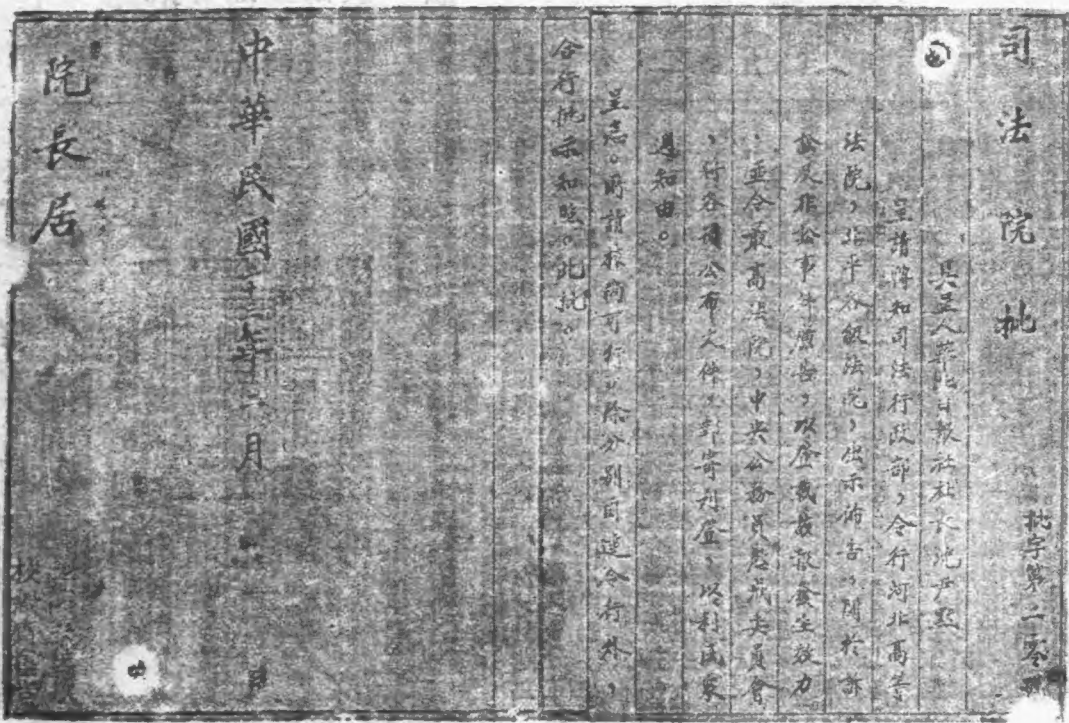 司法院批
批字第二零
具呈人華北日報社社長沈尹默
呈請降知司法行政部,令行河北高等
法院,北平各級法院,出示佈告,關於訴
訟及非訟事件廣告,以登載報發生效力
,並令最高法院,中央公務員懲戒委員會
,將各種公布文件,郵寄刊登,以利民衆
週知由。
呈悉。所請核尚可行,除分別函達令行外,
合行批示知照。此批。
中華民國二十二年十二月 日
院長居
校對